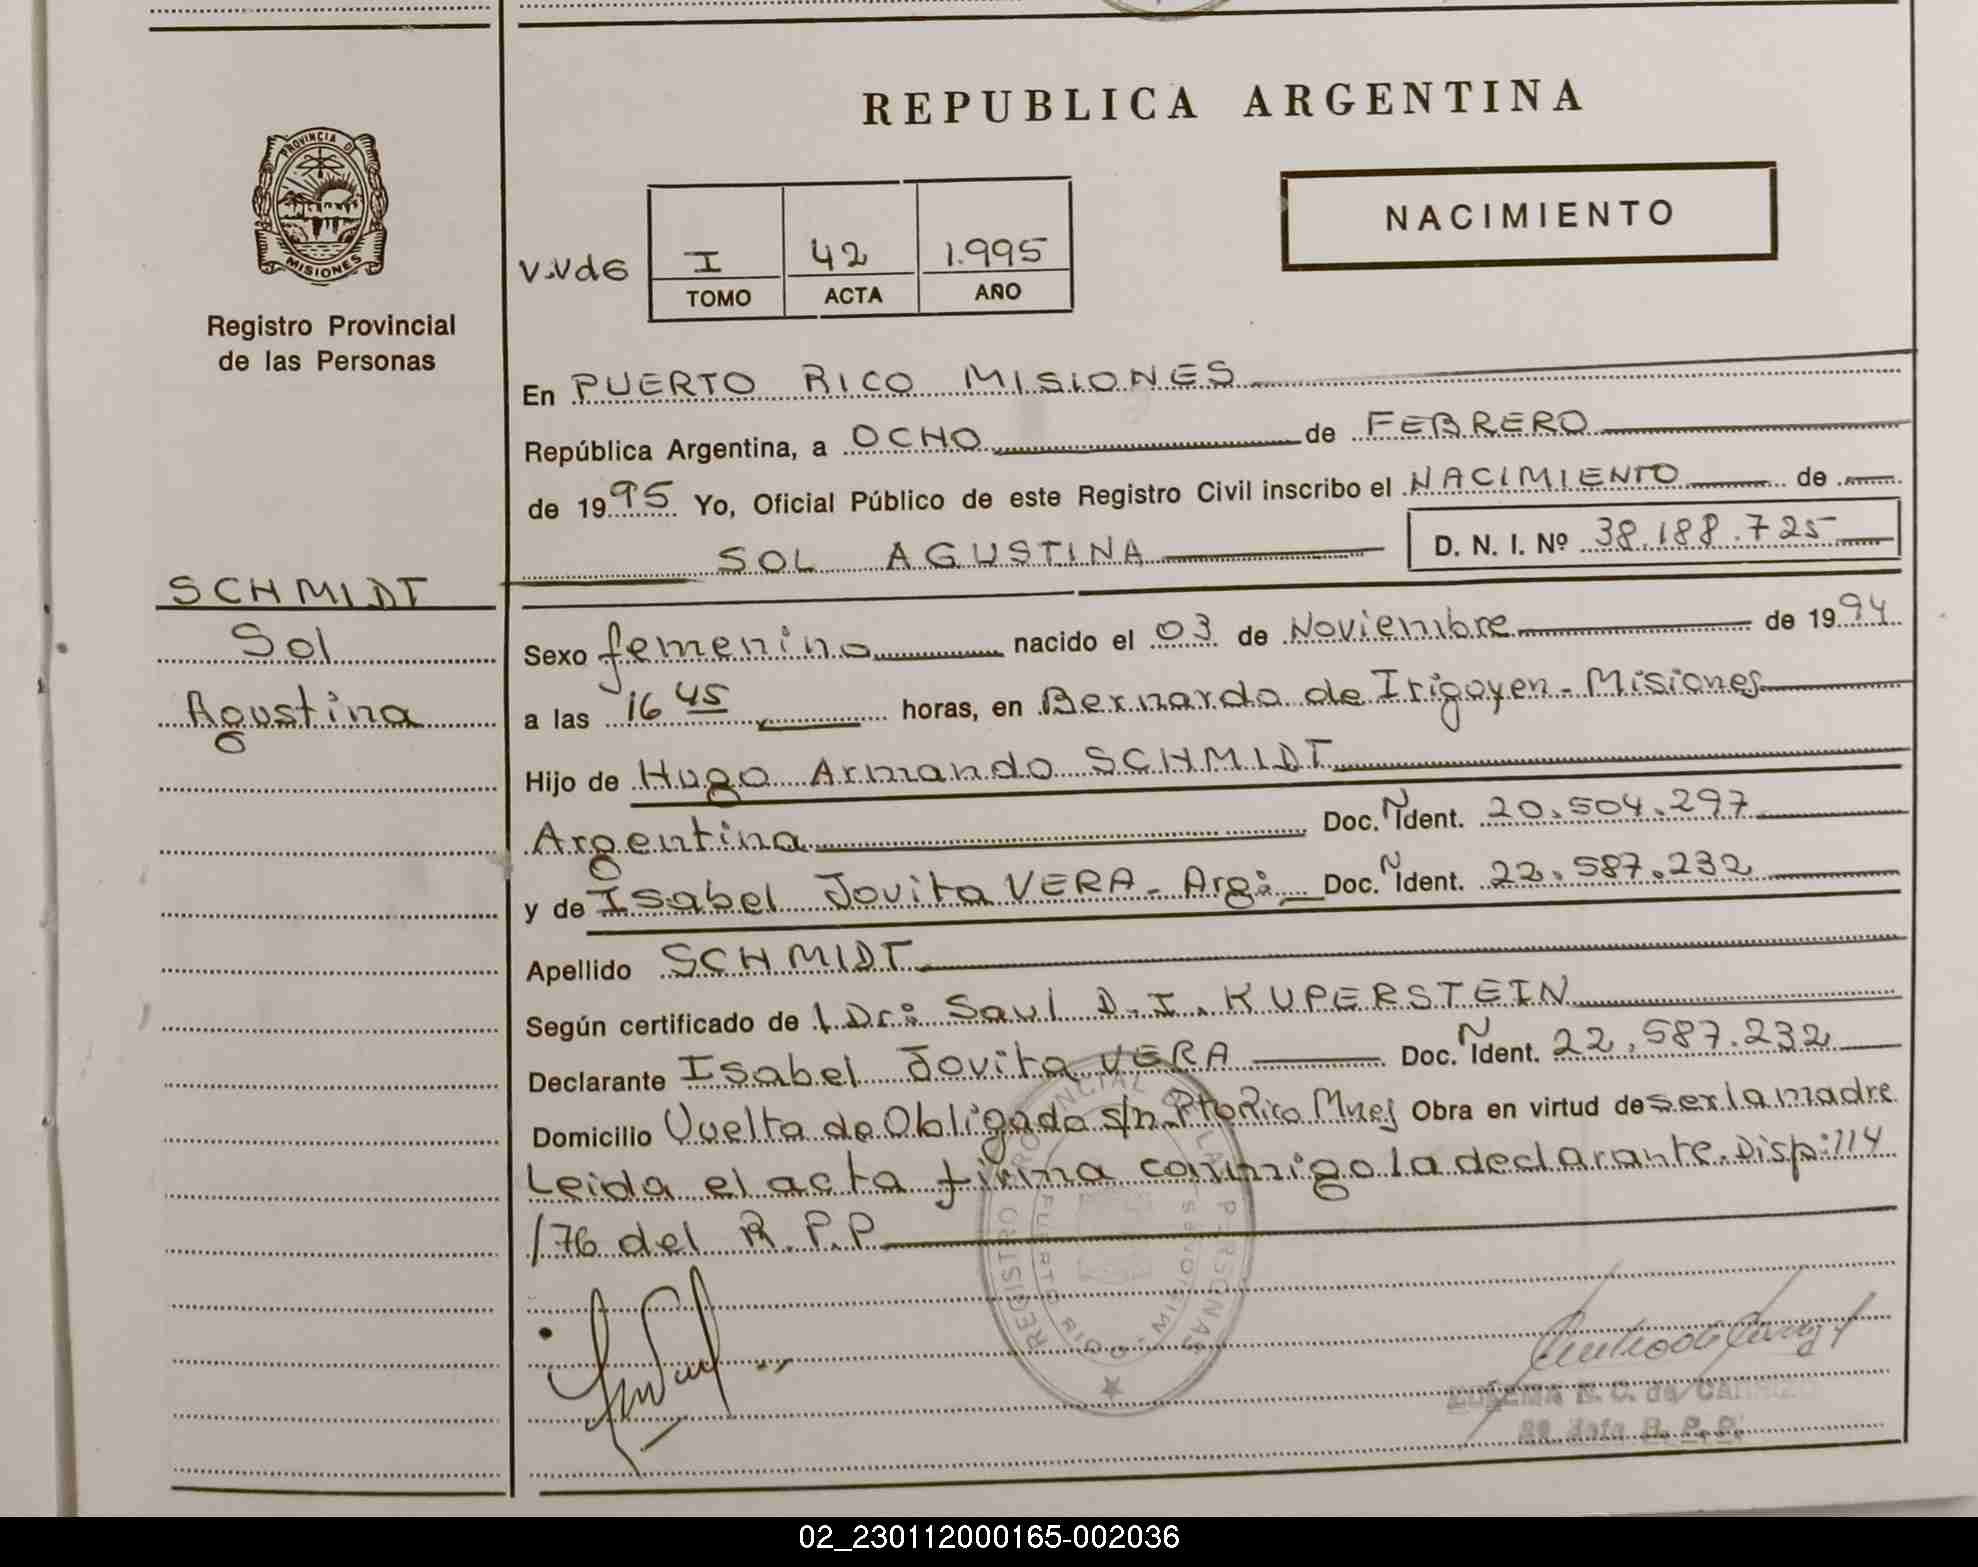 REPUBLICA ARGENTINA
PROVINCIA D
MISIONES
Registro Provincial
de las Personas
NACIMIENTO
I 42 1.995
TOMO ACTA AÑO
En PUERTO RICO MISIONES
República Argentina, a OCHO de FEBRERO
de 1995 Yo, Oficial Público de este Registro Civil inscribo el NACIMIENTO de
SOL AGUSTINA D. N. I. Nº 38.188.725
SCHMIDT
Sol
Agustina
Sexo femenino nacido el 03 de Noviembre de 1994
a las 16 45 horas, en Bernardo de Irigoyen - Misiones
Hijo de Hugo Armando SCHMIDT
Argentina Doc. Ñ Ident. 20.504.297
y de Isabel Jovita VERA - Arg: Doc. Ñ Ident. 22.587.232
Apellido SCHMIDT
Según certificado de l Dr: Saul D. I. KUPERSTEIN
Declarante Isabel Jovita VERA Doc. Ñ Ident. 22.587.232
Domicilio Vuelta de Obligado s/n. Pto Rico Mnes Obra en virtud de ser la madre
Leida el acta firma conmigo la declarante. Disp: 114
/76 del R.P.P
REGISTRO PROVINCIAL DE LAS PERSONAS
PUERTO RICO - MISIONES
N. C. de
02_230112000165-002036